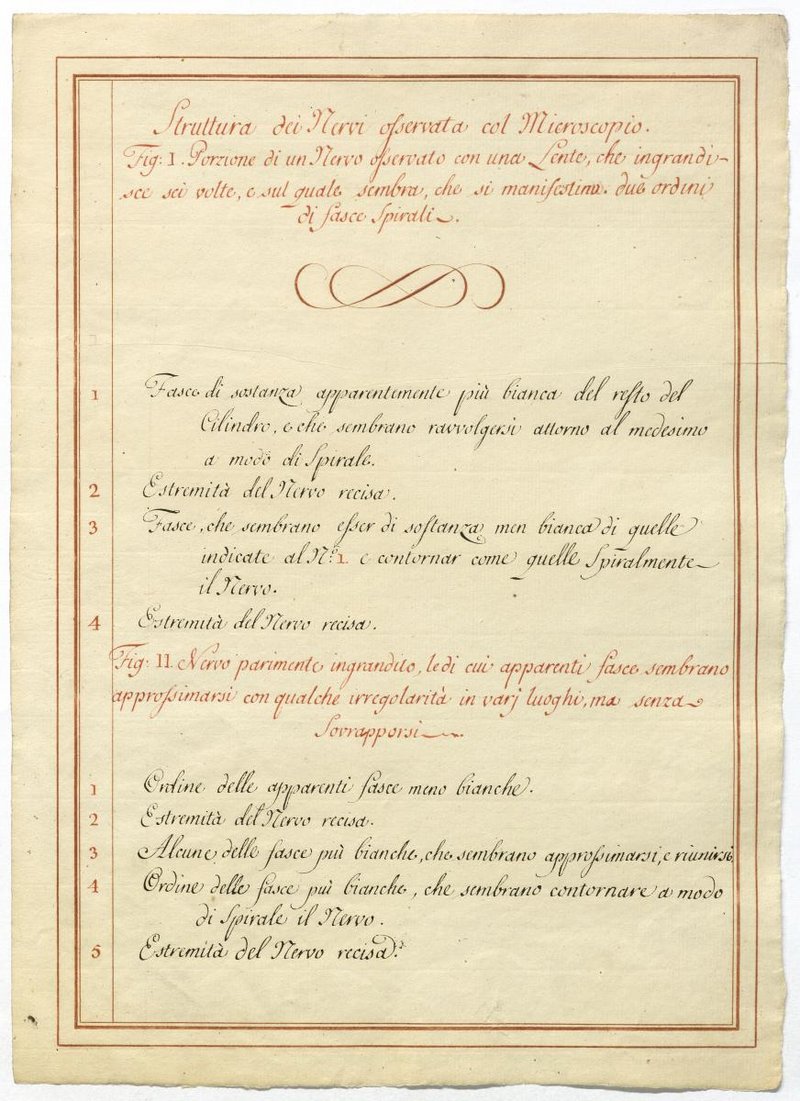 Struttura dei Nervi osservata col Microscopio.
Fig: I. Porzione di un Nervo osservato con una Lente, che ingrandi-
sce sei volte, e sul quale sembra, che si manifestino due ordini
di fasce Spirali.
1 Fasce di sostanza apparentemente più bianca del resto del
Cilindro, e che sembrano ravvolgersi attorno al medesimo
a modo di Spirale.
2 Estremità del Nervo recisa.
3 Fasce, che sembrano esser di sostanza men bianca di quelle
indicate al N.º 1. e contornar come quelle Spiralmente
il Nervo.
4 Estremità del Nervo recisa.
Fig: II. Nervo parimente ingrandito, le di cui apparenti fasce sembrano
approssimarsi con qualche irregolarità in varj luoghi, ma senza
Sovrapporsi.
1 Ordine delle apparenti fasce meno bianche.
2 Estremità del Nervo recisa.
3 Alcune delle fasce più bianche, che sembrano approssimarsi, e riunirsi.
4 Ordine delle fasce più bianche, che sembrano contornare a modo
di Spirale il Nervo.
5 Estremità del Nervo recisa.